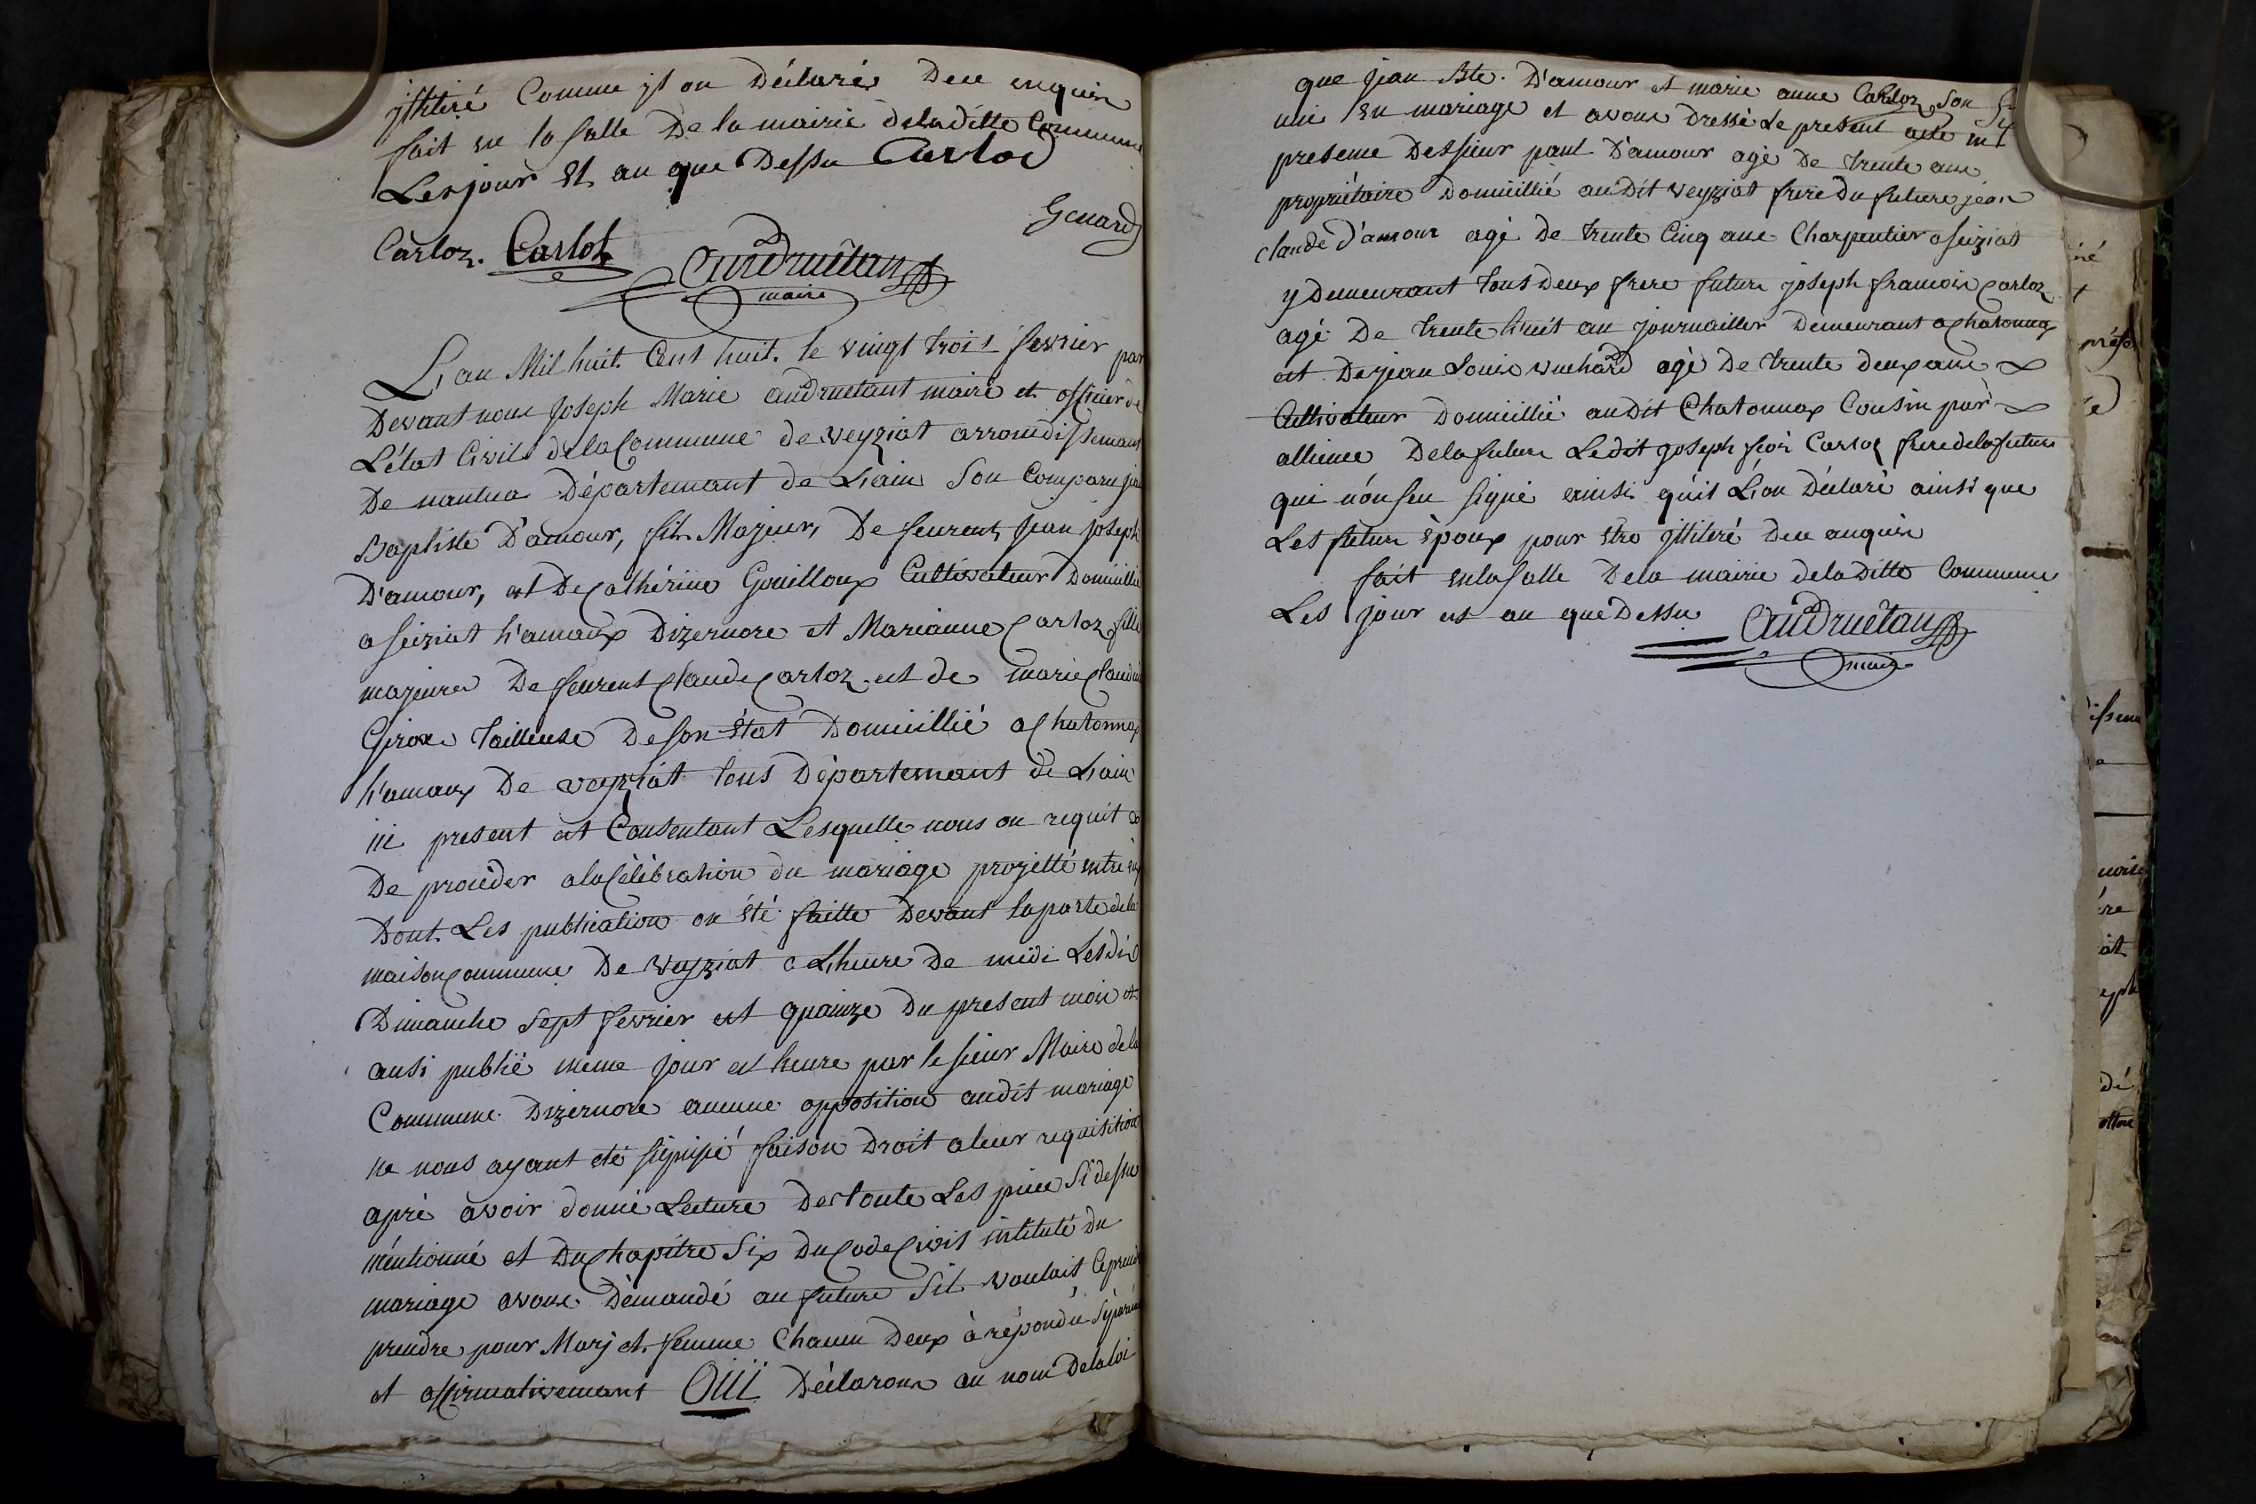 jlliteré Comme jl on Déclaré Deu enquis
fait en la salle De la mairie deladitte Commune
Les jour Et an que Dessu Carloz
Genard
Carloz. Carlot Andruétan
maire
L'an Mil huit. Cent huit. le vingt trois fevrier par
Devant nous Joseph Marie andruetant maire et officier de
L'état Civil de la Commune de veyziat arrondissemans
De nantua Département de L'ain Son Comparu jean
Baptiste D'amour, fils Majeur, De feurent Jean joseph
D'amour, et De Cathérine Gouilloux Cultivateur Domicillié
a Seiziat h'amaux Dizernore et Marianne Carloz fille
majeure De feurent Claude Carloz et de marie Claudine
Girox tailleuse De son état Domicillié a Chatonnax
h'amaux De veyziat tous Département de L'ain
ici present et Consentant Lesquelle nous on requit de
De procéder a la Célébration du mariage projetté entre eux
Dont Les publication on été faitte Devant la porte de la
maison Commune De veyziat a Lheure De midi Les di
Dimanche Sept fevrier et quainze Du present mois et
ausi publié meme jour et heure par le sieur Maire de la
Commune Dizernore aucune opposition audit mariage
ne nous ayant été signifié faison Droit a leur requisition
aprè avoir donné Lecture De toute Les piece Si dessu
méntionné et Du Chapitre Six Du Code Civil intitulé Du
mariage avons Démandé au future Sil voulait Ce prendre
prendre pour Marj et femme Chacun Deux à répondu Séparém
et affirmativemant Oüi Déclarons au nom De la loi
que jean Bte. D'amour et marie anne Carloz Son
uni En mariage et avons Dressé Le present acte in
presence Des sieur paul D'amour agé De trente ans
propriétaire Domicillié audit veyziat frere Du future jean
Claude D'amour agé De trente Cinq ans Charpentier a seiziat
y Demeurant tous Deux frere future joseph francois Carloz
agé De trente huit an journailler Demeurant a Chatonnax
et De jean Louis vuchard agé De trente deux ans
Cultivateur Domicillié audit Chatonnax Cousin par
allience De la future Ledit joseph fcois Carloz frere de la future
qui nónseu signé einsi qu'il L'on Déclaré ainsi que
Les future époux pour etre jlliteré Deu enquis
fait en la salle De la mairie de la Ditte Commune
Les jour et an que Dessu Andruétan
maire